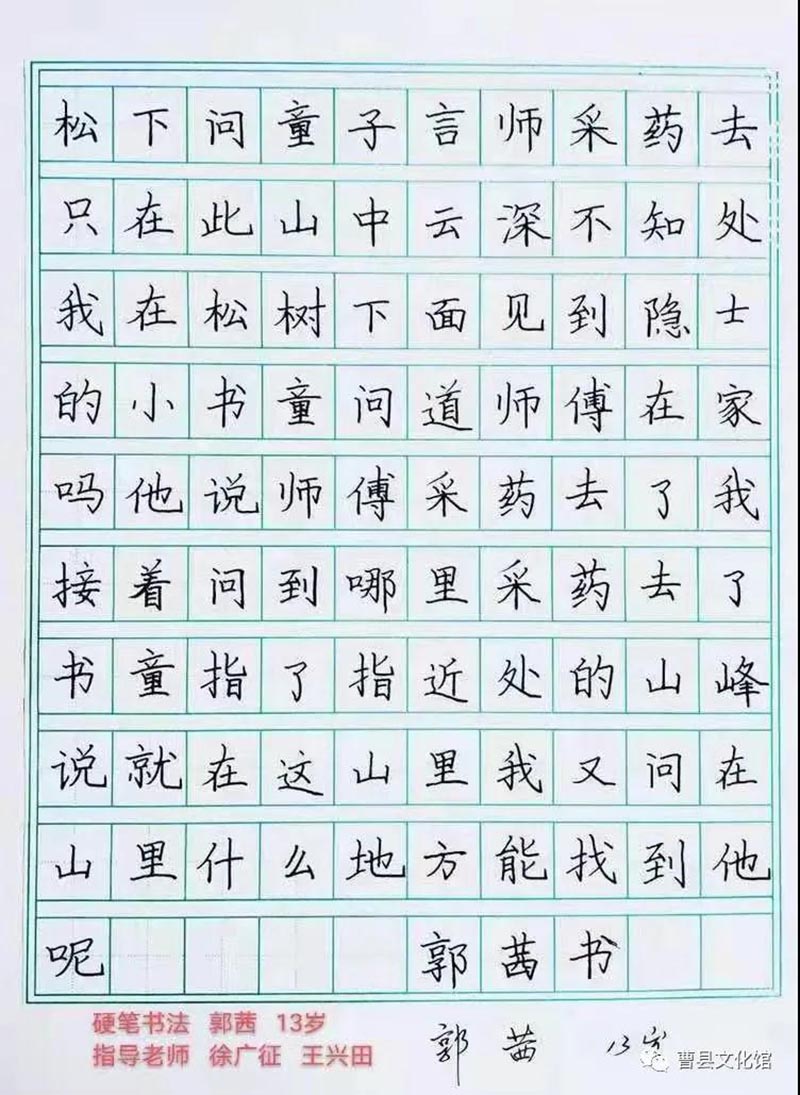 松下问童子言师采药去
只在此山中云深不知处
我在松树下面见到隐士
的小书童问道师傅在家
吗他说师傅采药去了我
接着问到哪里采药去了
书童指了指近处的山峰
说就在这山里我又问在
山里什么地方能找到他
呢 郭茜书
硬笔书法 郭茜 13岁
指导老师 徐广征 王兴田
郭茜 13岁
曹县文化馆